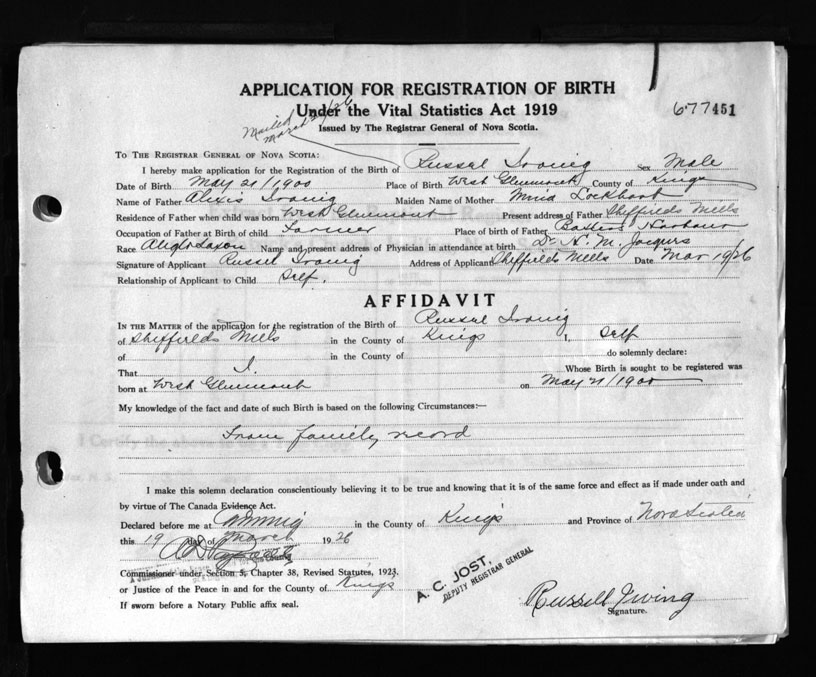 APPLICATION FOR REGISTRATION OF BIRTH
Under the Vital Statistics Act 1919
677451
Issued by The Registrar General of Nova Scotia.
Mailed
March 26/26
TO THE REGISTRAR GENERAL OF NOVA SCOTIA:
I hereby make application for the Registration of the Birth of Russel Irving Sex Male
Date of Birth May 21/1900 Place of Birth West Glenmont County of Kings
Name of Father Alexis Irving Maiden Name of Mother Lockhart
Residence of Father when child was born West Glenmont Present address of Father Sheffields Mills
Occupation of Father at Birth of child Farmer Place of birth of Father Baxters Harbour
Race Anglo Saxon Name and present address of Physician in attendance at birth Dr.
Signature of Applicant Russel Irving Address of Applicant Sheffields Mills Date Mar 19/26
Relationship of Applicant to Child Self.
AFFIDAVIT
IN THE MATTER of the application for the registration of the Birth of Russel Irving
of Sheffields Mills in the County of Kings I, Self
of in the County of do solemnly declare:
That I. Whose Birth is sought to be registered was
born at West Glenmont on May 21/1900
My knowledge of the fact and date of such Birth is based on the following Circumstances:—
From family record
I make this solemn declaration conscientiously believing it to be true and knowing that it is of the same force and effect as if made under oath and
by virtue of The Canada Evidence Act.
Declared before me at in the County of King's and Province of Nova Scotia
this 19 day of March 1926
Commissioner under Section 5, Chapter 38, Revised Statutes, 1923,
or Justice of the Peace in and for the County of King's
If sworn before a Notary Public affix seal.
A. C. JOST,
DEPUTY REGISTRAR GENERAL
Russell Irving
Signature.